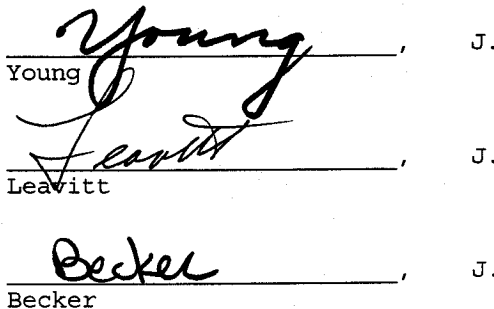 Young, J.
Young
Leavitt, J.
Leavitt
Becker, J.
Becker